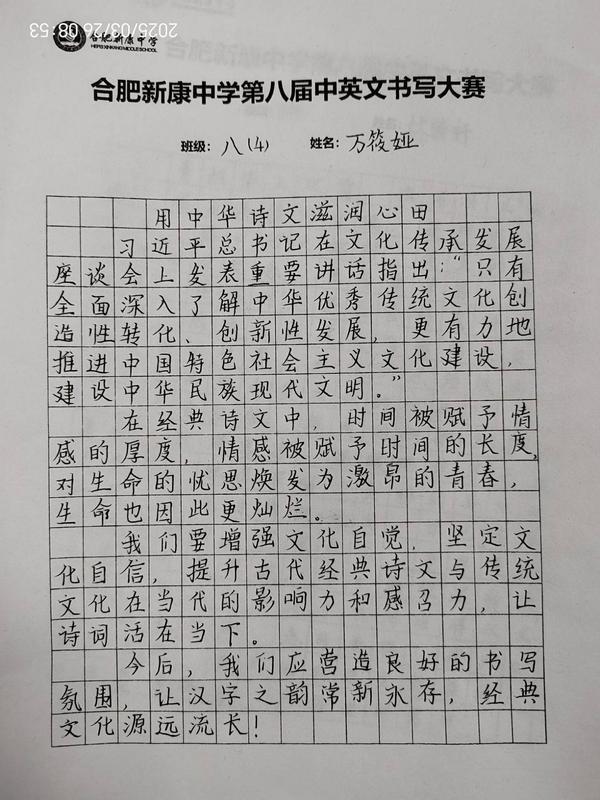 2025/03/26 08:53
合肥新康中学
HEFEI XINKANG MIDDLE SCHOOL
合肥新康中学第八届中英文书写大赛
班级：八(4) 姓名：万筱娅
用中华诗文滋润心田
习近平总书记在文化传承发展
座谈会上发表重要讲话指出：“只有
全面深入了解中华优秀传统文化创
造性转化、创新性发展，更有力地
推进中国特色社会主义文化建设，
建设中华民族现代文明。”
在经典诗文中，时间被赋予情
感的厚度，情感被赋予时间的长度，
对生命的忧思焕发为激昂的青春，
生命也因此更灿烂。
我们要增强文化自觉，坚定文
化自信，提升古代经典诗文与传统
文化在当代的影响力和感召力，让
诗词活在当下。
今后，我们应营造良好的书写
氛围，让汉字之韵常新永存，经典
文化源远流长！